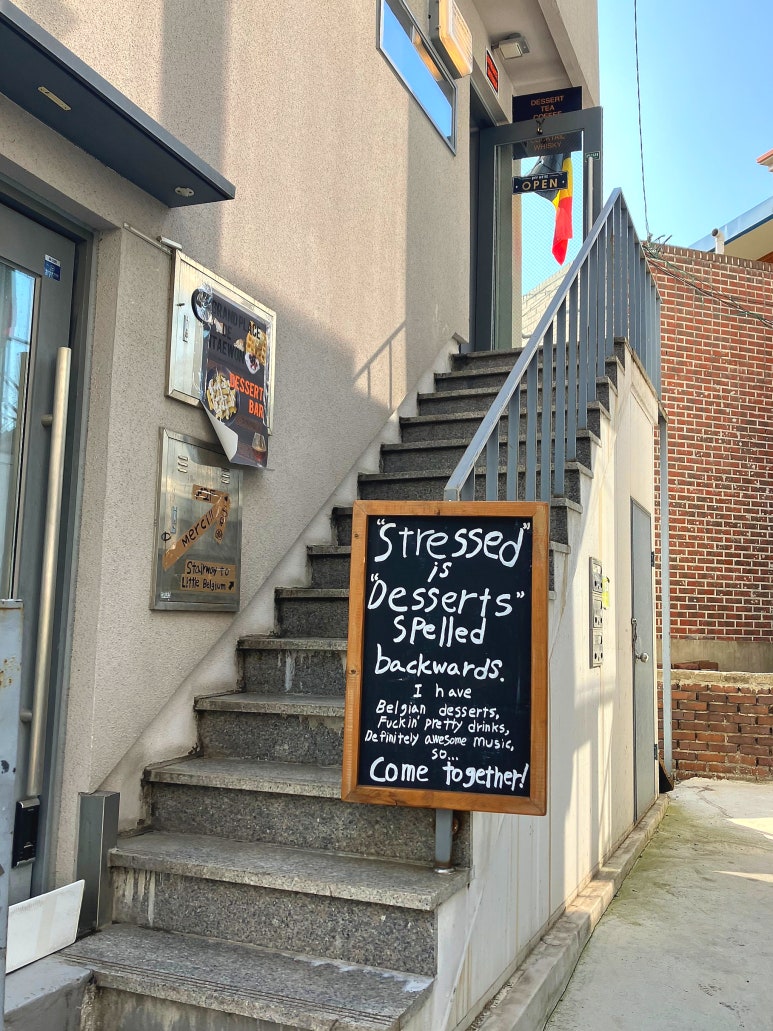 DESSERT
TEA
COFFEE
COCKTAIL
WHISKY
OPEN
GRAND PLACE
DE
ITAEWON
DESSERT
BAR
Merci!!
Stairway to
Little Belgium
"Stressed"
is
"Desserts"
Spelled
backwards.
I have
Belgian desserts,
Fuckin' pretty drinks,
Definitely awesome music,
so...
Come together!